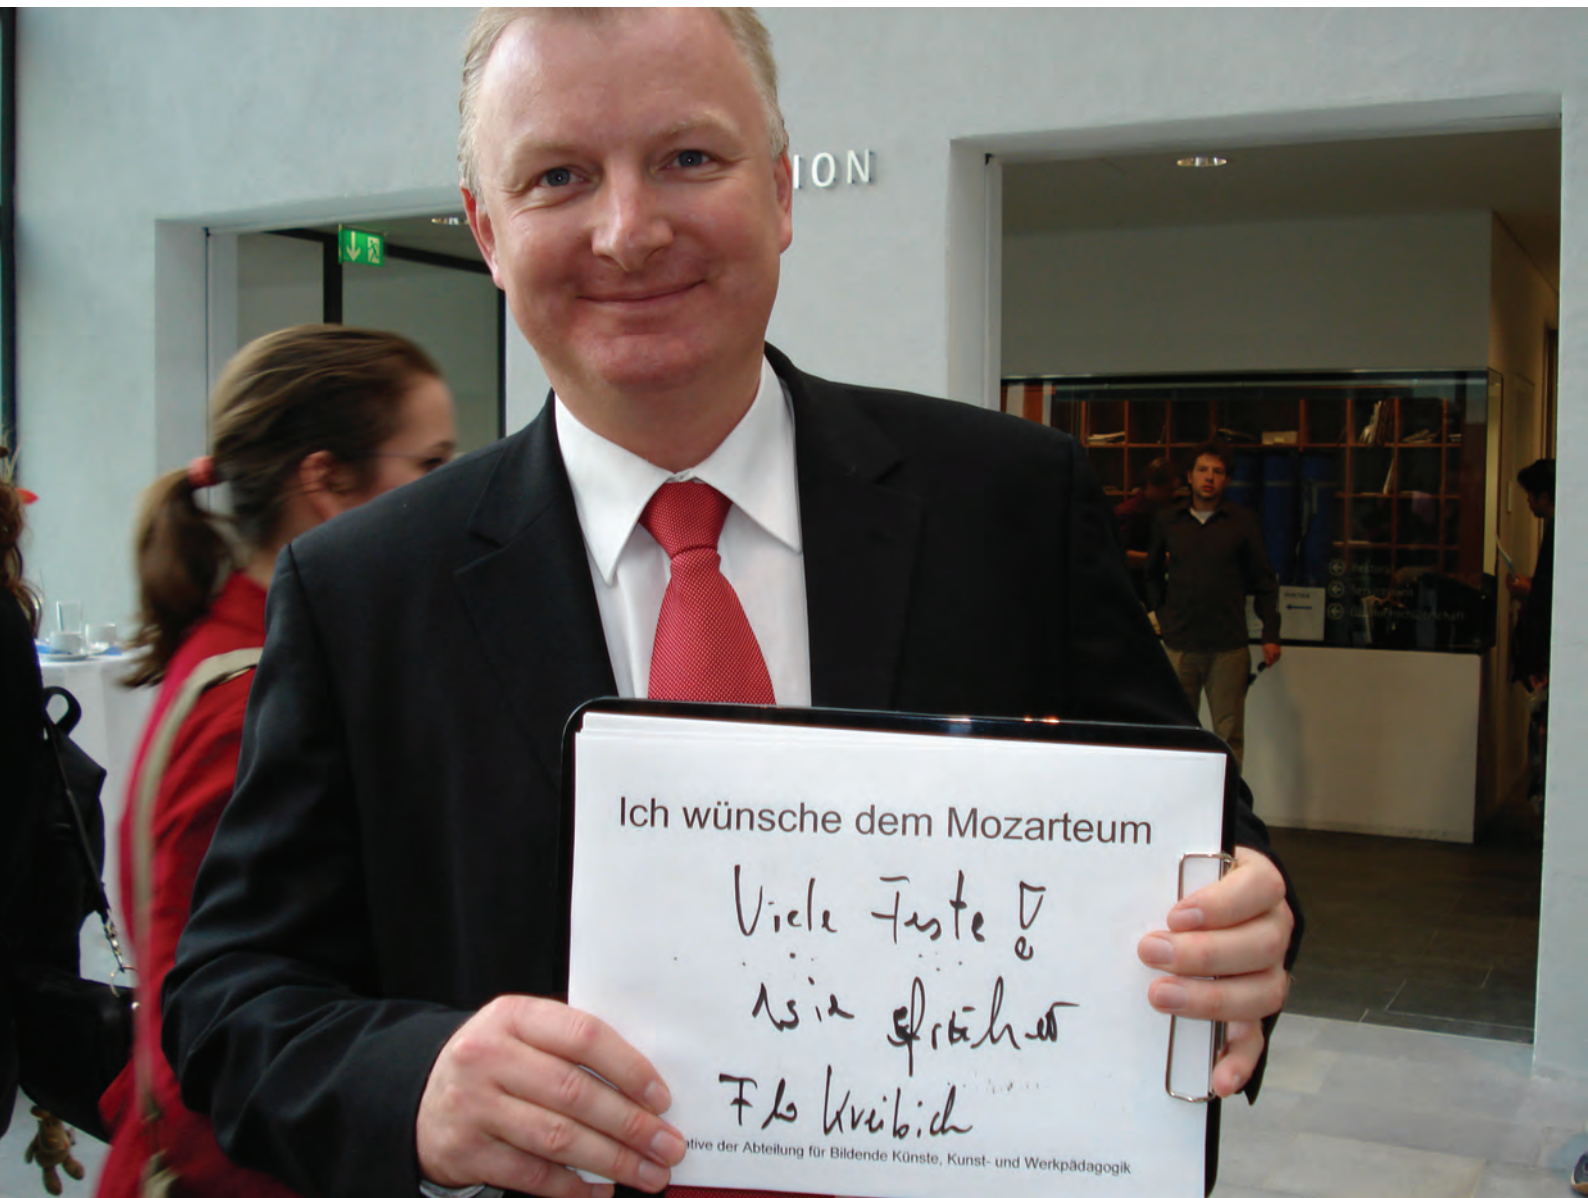 ION
Ich wünsche dem Mozarteum
Viele Feste!
wie früher
Flo Kreibich
ative der Abteilung für Bildende Künste, Kunst- und Werkpädagogik